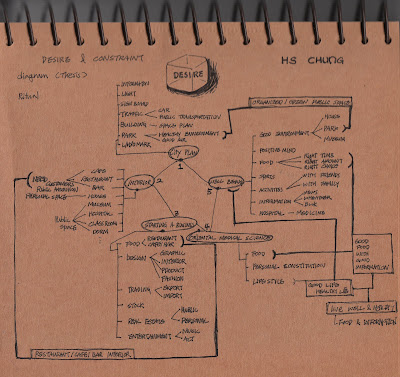 DESIRE & CONSTRAINT
HS CHUNG
diagram (thesis)
Ritual
DESIRE
INFORMATION
LIGHT
SIGN BOARD
TRAFFIC
CAR
PUBLIC TRANSPORTATION
BUILDING
SPACE PLAN
PARK
HEALTHY ENVIRONMENT
GOOD AIR
LANDMARK
CITY PLAN
1
ORGANIZED / GREEN PUBLIC SPACE
GOOD ENVIRONMENT
HOUSE
PARK
MUSEUM
POSITIVE MIND
FOOD
RIGHT TIME
RIGHT AMOUNT
RIGHT
SPORTS
WITH FRIENDS
WITH FAMILY
ACTIVITIES
INFORMATION
BOOK
HOSPITAL
MEDICINE
WELL BEING
5
INTERIOR
2
CAFE
RESTAURANT
BAR
HOUSE
MUSEUM
HOSPITAL
CLASSROOM
CUSTOMERS
PERSONAL SPACE
PUBLIC
SPACE
3
STARTING A BUSINESS
4
ORIENTAL MEDICAL SCIENCE
FOOD
RESTAURANT
CAFE / BAR
DESIGN
GRAPHIC
INTERIOR
PRODUCT
FASHION
TRADING
EXPORT
IMPORT
STOCK
REAL ESTATE
PUBLIC
PERSONAL
ENTERTAINMENT
MUSIC
ART
FOOD
PERSONAL CONSTITUTION
LIFESTYLE
GOOD LIFE
HEALTHY LIFE
GOOD
FOOD
WITH
GOOD
INFORMATION
LIVE WELL &
FOOD & INFORMATION
RESTAURANT / CAFE / BAR INTERIOR